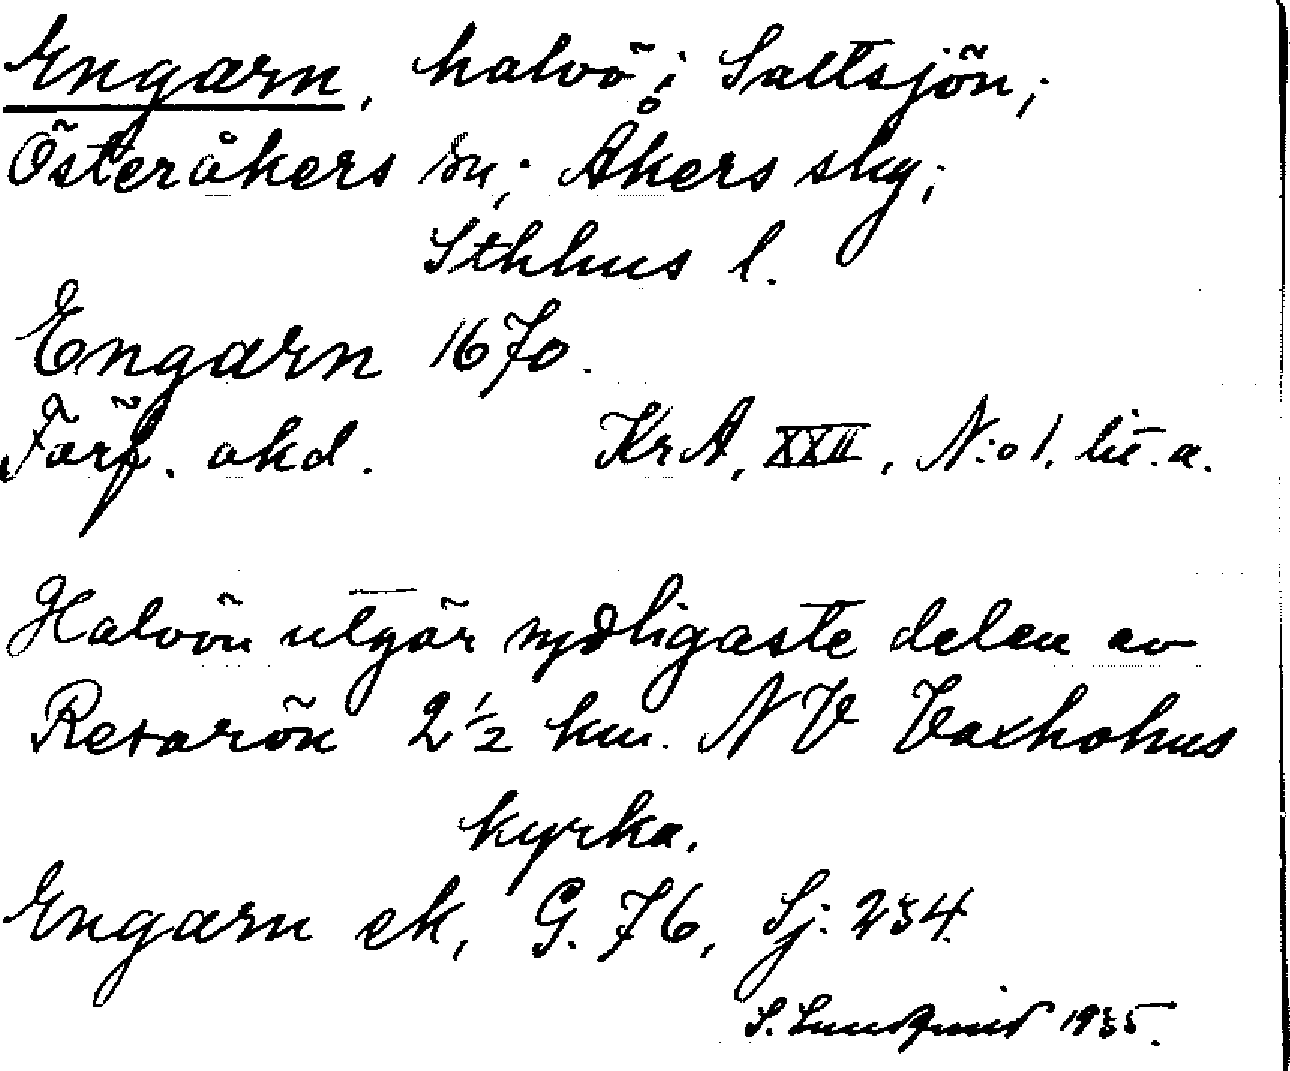 Engarn, halvö i Saltsjön;
Österåkers sn; Åkers sky;
Sthlms l.
Engarn 1670.
Förf. okd. KrA, XXII, N:o 1. lit. a.
Halvön utgör sydligaste delen av
Resarön 2½ km. NV Vaxholms
kyrka.
Engarn ek, G. 76, Sj: 234.
S. Lundqvist 1935.